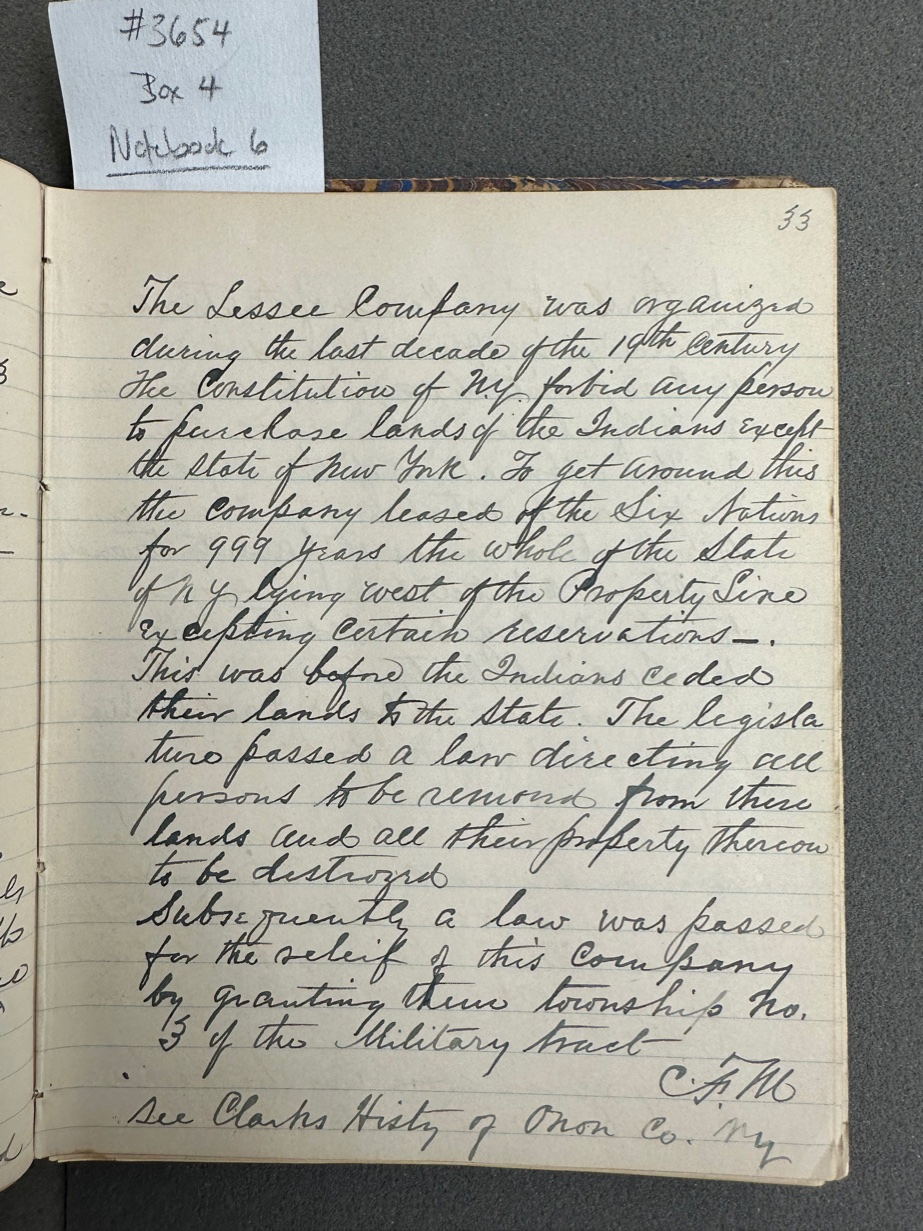 #3654
Box 4
Notebook 6
33
The Lessee Company was organized
during the last decade of the 19th Century
The Constitution of N.Y. forbid any person
to purchase lands of the Indians except
the state of New York. To get around this
the company leased of the Six Nations
for 999 years the whole of the State
of N Y lying west of the Property Line
excepting certain reservations—.
This was before the Indians ceded
their lands to the State. The legisla
ture passed a law directing all
persons to be removed from these
lands and all their property thereon
to be destroyed
Subsequently a law was passed
for the releif of this Company
by granting them township No.
3 of the Military tract
C. F. M
see Clarks Histy of Onon Co. Ny